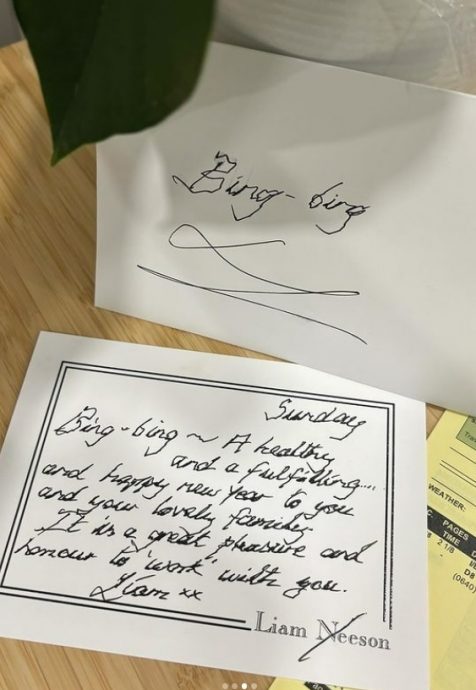 Bing-bing
Sunday
Bing-bing ~ A healthy
and a fulfilling....
and happy new year to you
and your lovely family.
It is a great pleasure and
honour to 'work' with you.
Liam xx
Liam Neeson
WEATHER:
PAGES
TIME
2 1/8
D8
(0640)